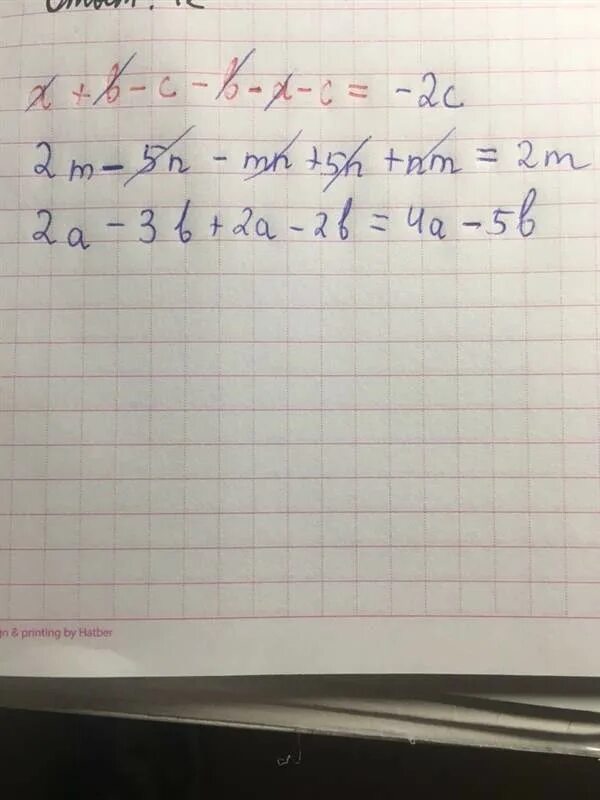 x + b - c - b - x - c = -2c
2m - 5n - mn + 5n + nm = 2m
2a - 3b + 2a - 2b = 4a - 5b
n & printing by Hatber